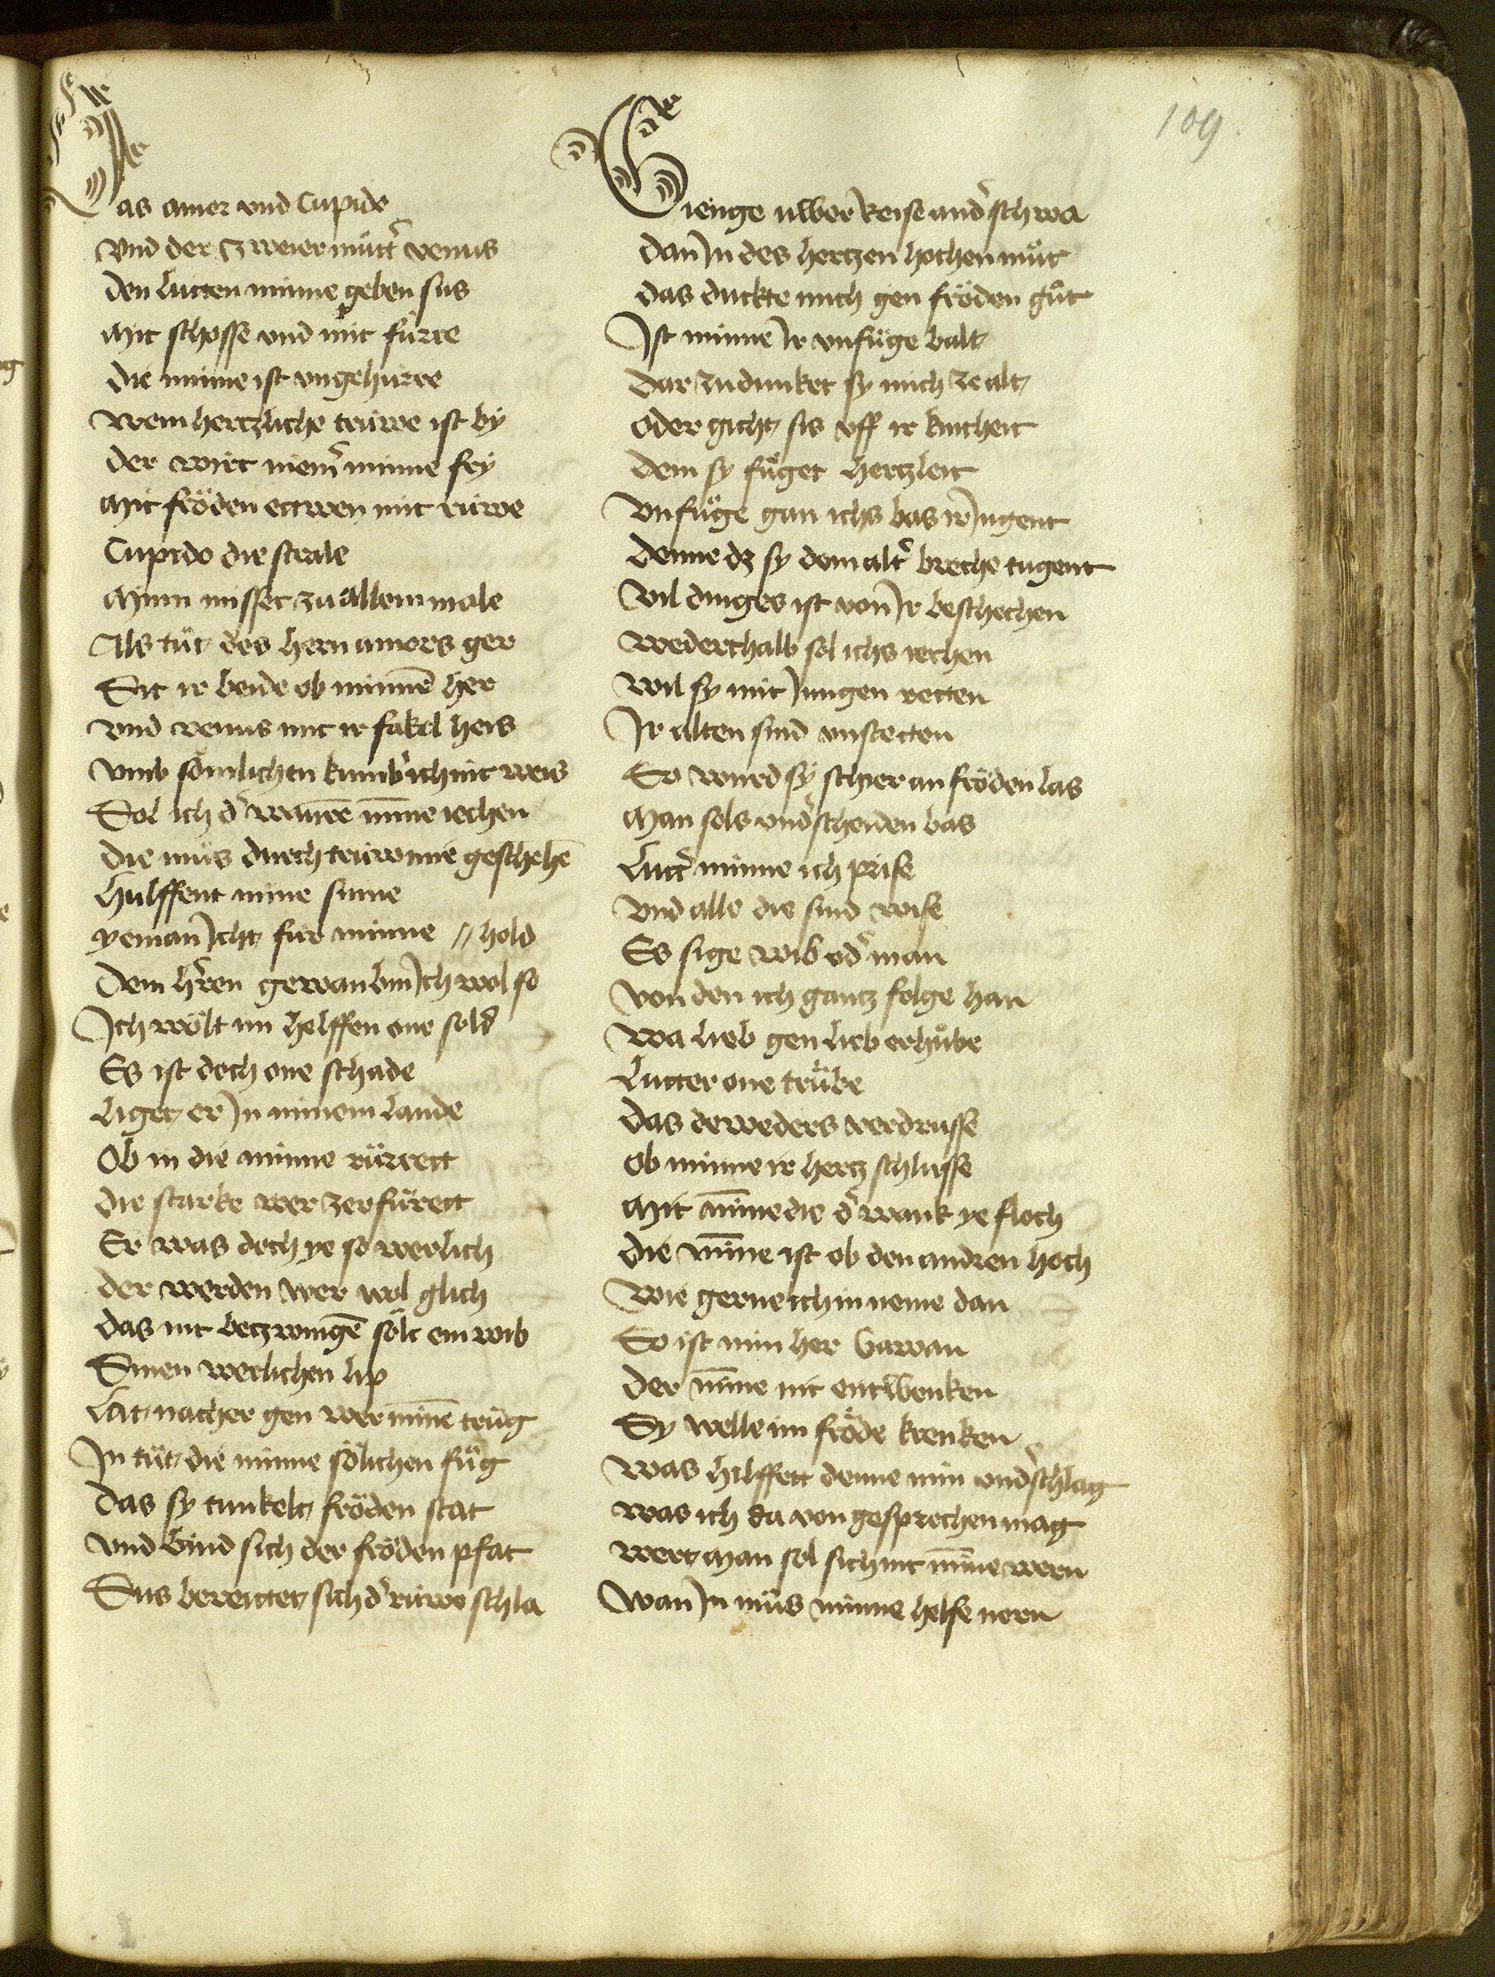 109
Das amor vnd Cupido
vnd der zweier mütt͛ venus
den lutten minne geben sus
Mit schosse vnd mit fürre
die minne ist vngehürre
wem hertzliche trüwe ist by
der wirt niem͛ minne fry
Mit fröden ettwen mit rüwe
Cupido die strale
Minn misset zu allem male
Als tüt des hern amors ger
Sit ir beide ob minnē her
vnd venus mit ir fakel heis
vmb sömlichen kumb͛ ich nit weis
Sol ich d͛ warrē minne iechen
die müs durch trüw mir geschehē
Hulffent mine sinne
yeman Icht fur minne // hold
dem h͛ren gewan bin Ich wol so
Ich wölt im helffen one sold
Es ist doch one schade
liget er In minem lande
Ob in die minne rürrett
die starke wer zerfürett
Er was doch ye so werlich
der werden wer wol glich
das nit betzwingē sölt ein wib
Sinen werlichen lip
lat nacher gen wer minnē trüg
In tüt die minne sölichen füg
das sy tunkelt fröden stat
vnd bind sich der fröden pfat
Sus bereittet sich d͛ rüwe schla
Gienge uwer reise and͛schwa
dan In des hertzen hochen müt
das duckte mich gen fröden güt
Ist minne Ir vnfüge balt
dar zu dunket sy mich ze alt
oder gicht sis vff ir kintheit
dem sy füget hertzleit
vnfüge gan ichs bas ir Iugent
denne dz sy dem alt͛ breche tugent
vil dinges ist von Ir beschechen
wederthalb sol ichs iechen
wil sy mit Iungen retten
Ir alten sind vnstetten
So wurd sy schier an fröden las
Man sols vnd͛scheiden bas
lutt͛ minne ich prise
vnd alle die sind wise
Es sige wib od͛ man
von den ich gantz folge han
wa lieb gen lieb erhübe
lutter one trübe
das deweders verdrusse
ob minne ir hertz schlusse
Mit minne die d͛ wank ye floch
die minne ist ob den andren hoch
wie gerne ich in neme dan
So ist min her Gawan
der minne nit entwenken
Sy welle im fröde krenken
was hilffett denne min vnd͛schlag
was ich da von gesprechen mag
wert man sol sich mit minne wern
wan In müs minne helfe nern